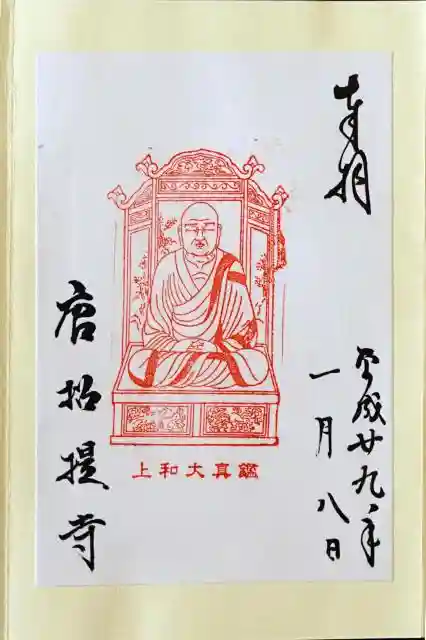 奉拝
平成廿九年
一月八日
上和大真鑑
唐招提寺